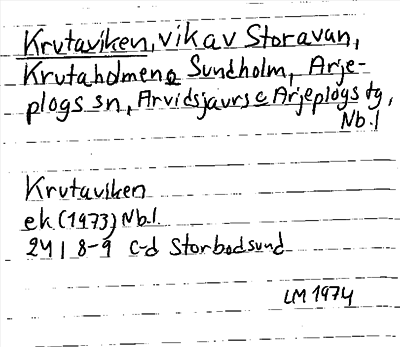 Krutaviken, vik av Storavan,
Krutaholmen o Sundholm, Arje-
plogs sn, Arvidsjaurs o Arjeplogs tg,
Nb.l
Krutaviken
ek (1973) Nb.l.
24I 8-9 c-d Storbodsund
LM 1974